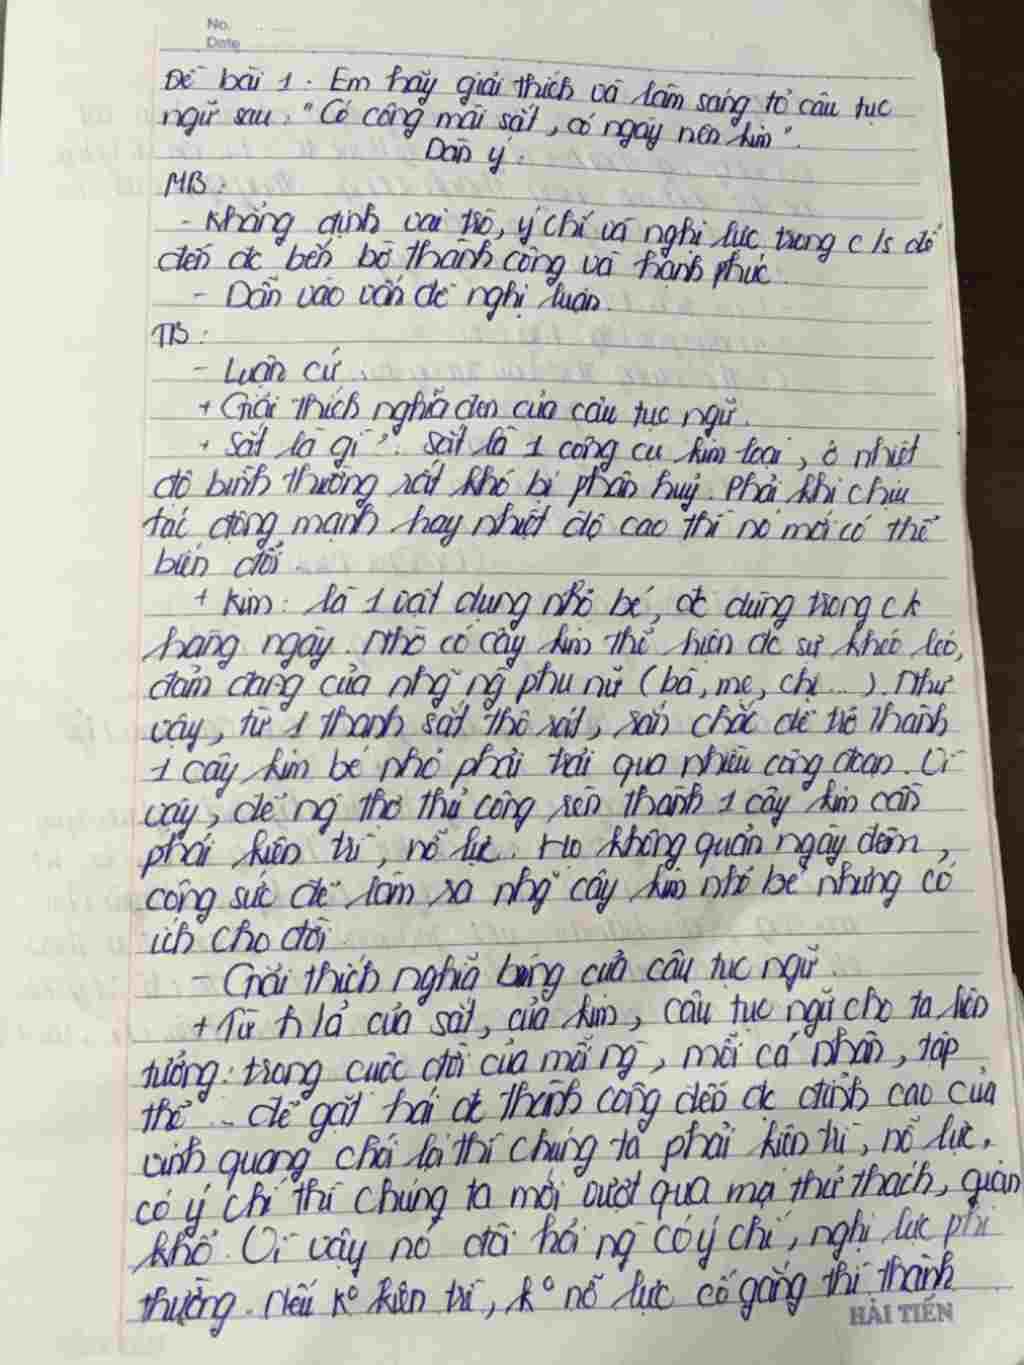 No.
Date
Đề bài 1: Em hãy giải thích và làm sáng tỏ câu tục
ngữ sau: "Có công mài sắt, có ngày nên kim".
Dàn ý:
MB:
- Khẳng định vai trò, ý chí và nghị lực trong c/s để
đến đc bến bờ thành công và hạnh phúc.
- Dẫn vào vấn đề nghị luận.
TB:
- Luận cứ
+ Giải thích nghĩa đen của câu tục ngữ.
+ Sắt là gì?: Sắt là 1 công cụ kim loại, ở nhiệt
độ bình thường rất khó bị phân huỷ. Phải khi chịu
tác động mạnh hay nhiệt độ cao thì nó mới có thể
biến đổi.
+ Kim: là 1 vật dụng nhỏ bé, đc dùng trong ck
hàng ngày. Nhờ có cây kim thể hiện đc sự khéo léo,
đảm đang của nhg ng phụ nữ (bà, mẹ, chị...). Như
vậy, từ 1 thanh sắt thô ráp, rắn chắc để trở thành
1 cây kim bé nhỏ phải trải qua nhiều công đoạn. Vì
vậy, để ng thợ thủ công rèn thành 1 cây kim cần
phải kiên trì, nỗ lực. Họ không quản ngày đêm,
công sức để làm ra nhg cây kim nhỏ bé nhưng có
ích cho đời
- Giải thích nghĩa bóng của câu tục ngữ.
+ Từ h/ả của sắt, của kim, câu tục ngữ cho ta liên
tưởng: trong cuộc đời của mỗi ng, mỗi cá nhân, tập
thể... để gặt hái đc thành công đến đc đỉnh cao của
vinh quang chói lọi thì chúng ta phải kiên trì, nỗ lực,
có ý chí thì chúng ta mới vượt qua mọi thử thách, gian
khổ. Vì vậy nó đòi hỏi ng có ý chí, nghị lực phi
thường. Nếu k° kiên trì, k° nỗ lực cố gắng thì thành
HẢI TIẾN